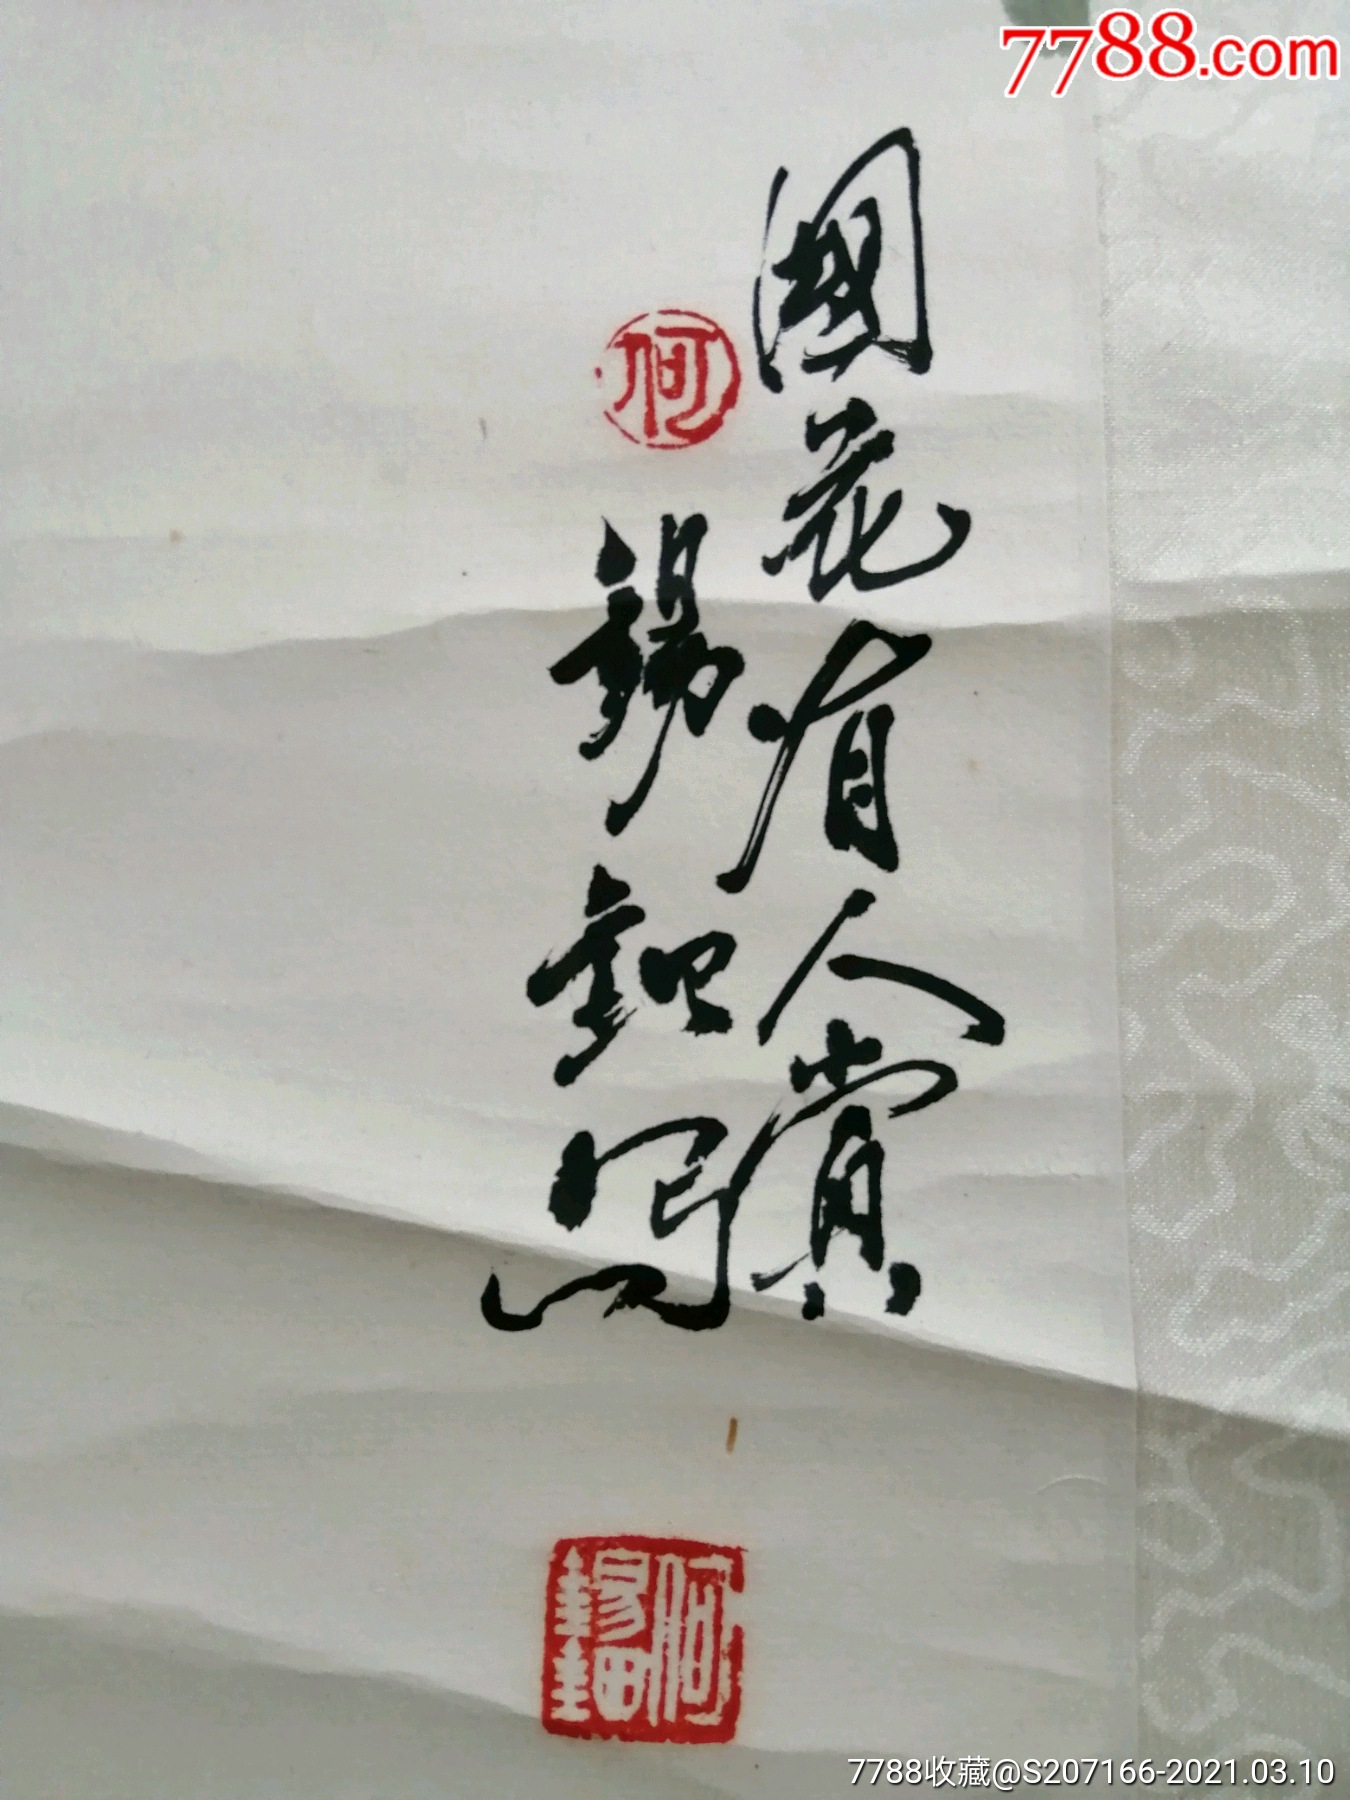 7788.com
國花有人賞
何
錫鈿寫
何
錫鈿
7788收藏@S207166-2021.03.10